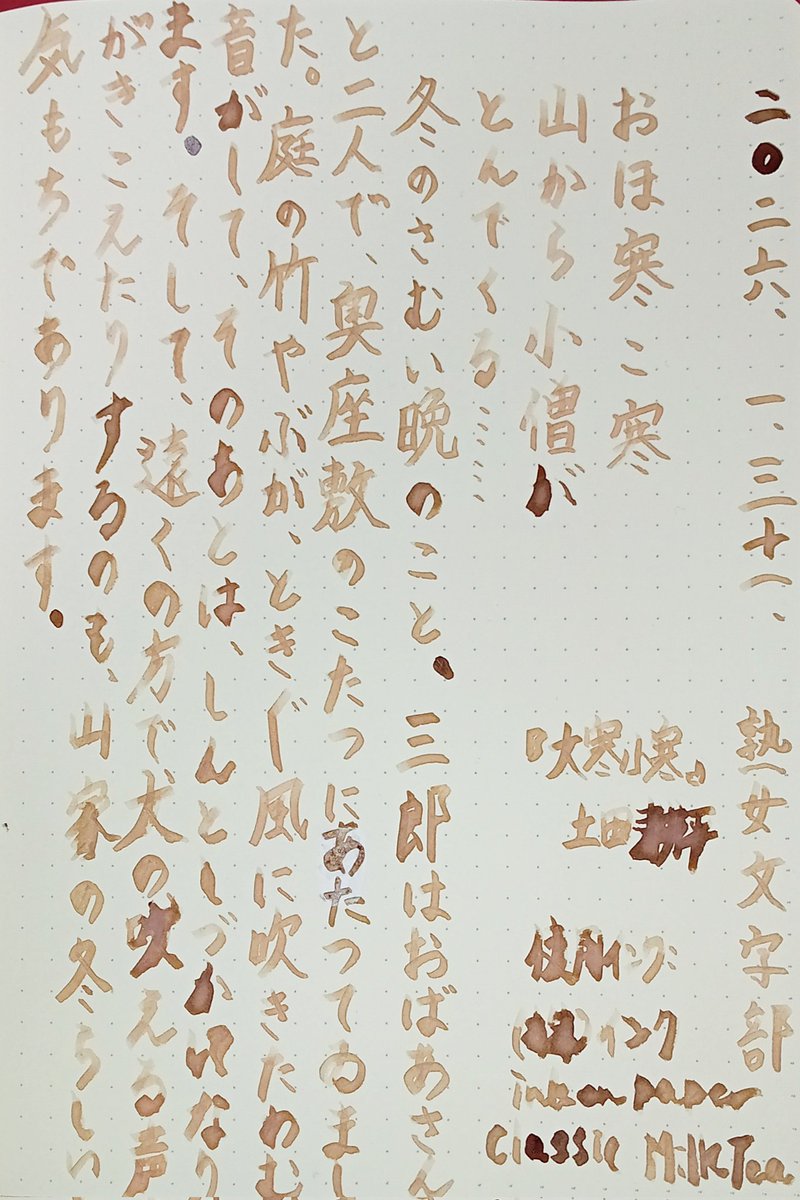 二〇二六、一、三十一、 熟女文字部
おほ寒こ寒
山から小僧が
とんでくる……
『大寒小寒』
土田耕平
使用インク
インク
ink on paper
Classic Milk Tea
冬のさむい晩のこと。三郎はおばあさん
と二人で、奥座敷のこたつにあたつてゐまし
た。庭の竹やぶが、ときぐ風に吹きたわむ
音がして、そのあとは、しんとしづかになり
ます。そして、遠くの方で、犬の吠える声
がきこえたりするのも、山家の冬らしい
気もちであります。